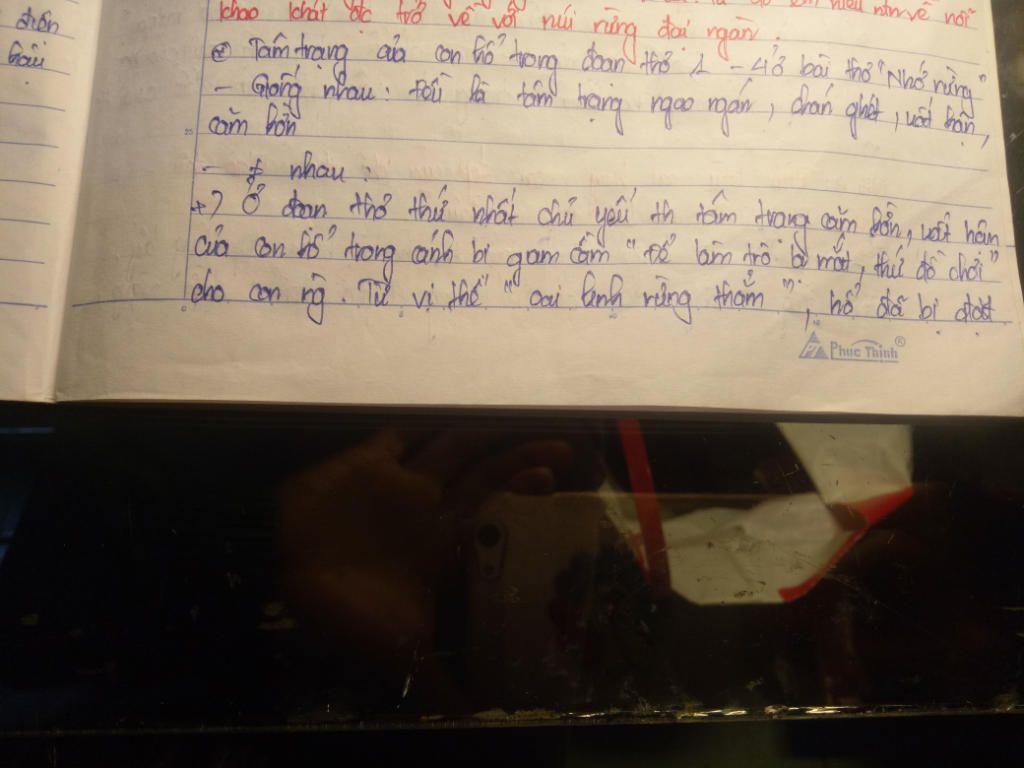 điển
hữu
khao khát đc trở về với núi rừng đại ngàn.
Tâm trạng của con hổ trong đoạn thơ 1 - 4 ở bài thơ "Nhớ rừng"
- Giống nhau: đều là tâm trạng ngao ngán, chán ghét, uất hận,
căm hờn
- ≠ nhau:
+) Ở đoạn thơ thứ nhất chủ yếu th tâm trạng căm hờn, uất hận
của con hổ trong cảnh bị giam cầm "để làm trò lạ mắt, thứ đồ chơi"
cho con ng. Từ vị thế "oai linh rừng thẳm", hổ đã bị
Phuc Thinh®